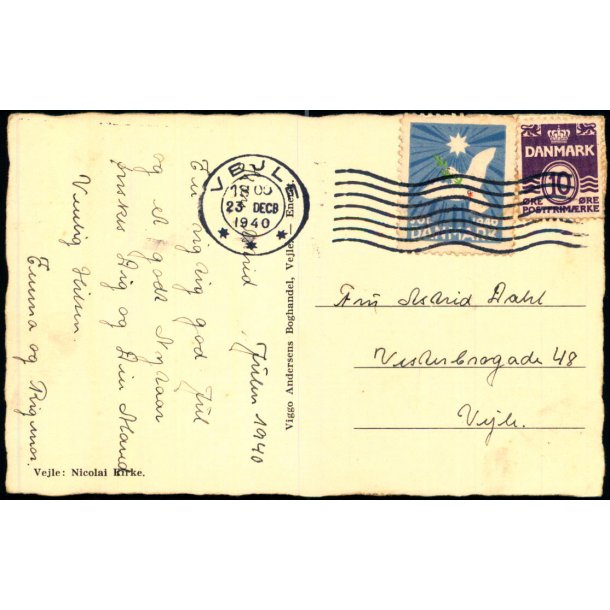 Julen 1940
Astrid
En rigtig god Jul
og et godt Nytaar
ønskes Dig og Din Mand
Venlig Hilsen.
Emma og Rigmor.
Vejle: Nicolai Kirke.
Viggo Andersens Boghandel, Vejle. — Eneret.
VEJLE
18 00
23 DECB
1940
JUL 1940
DANMARK
DANMARK
10
ØRE ØRE
POSTFRIMÆRKE
Fru Astrid Dahl
Vesterbrogade 48
Vejle.